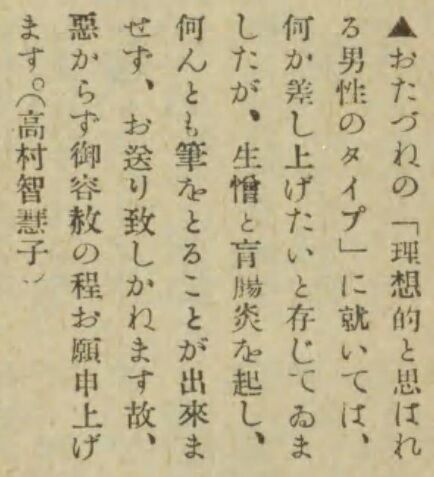 ▲おたづねの「理想的と思はれ
る男性のタイプ」に就いては、
何か差し上げたいと存じてゐま
したが、生憎と盲腸炎を起し、
何んとも筆をとることが出來ま
せず、お送り致しかねます故、
惡からず御容赦の程お願申上げ
ます。(高村智慧子)